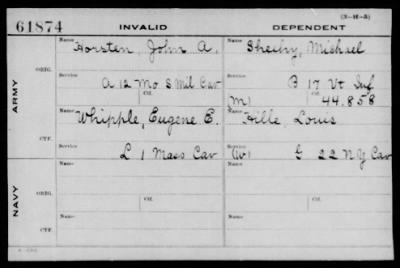 (3-H-5)
61874 INVALID DEPENDENT
Name Horsten, John A. Name Sheehy, Michael
ARMY
ORIG.
Service A 12 Mo S Mil Cav Ctf. Service B 17 Vt Inf Ctf.
(M) 44.858
Name Whipple, Eugene E. Name Hille, Louis
CTF.
Service L 1 Mass Cav Service (W) G 22 N Y Cav
NAVY
Name Name
ORIG. Ctf. Ctf.
Service Service
Name Name
CTF.